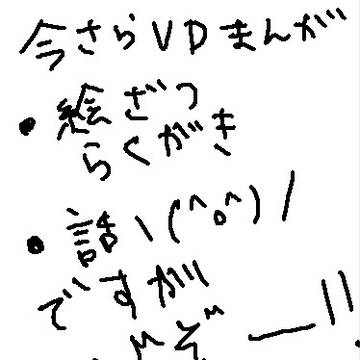 今さらVDまんが
・絵ざつ
らくがき
・話\(^o^)/
ですが
どーーー!!